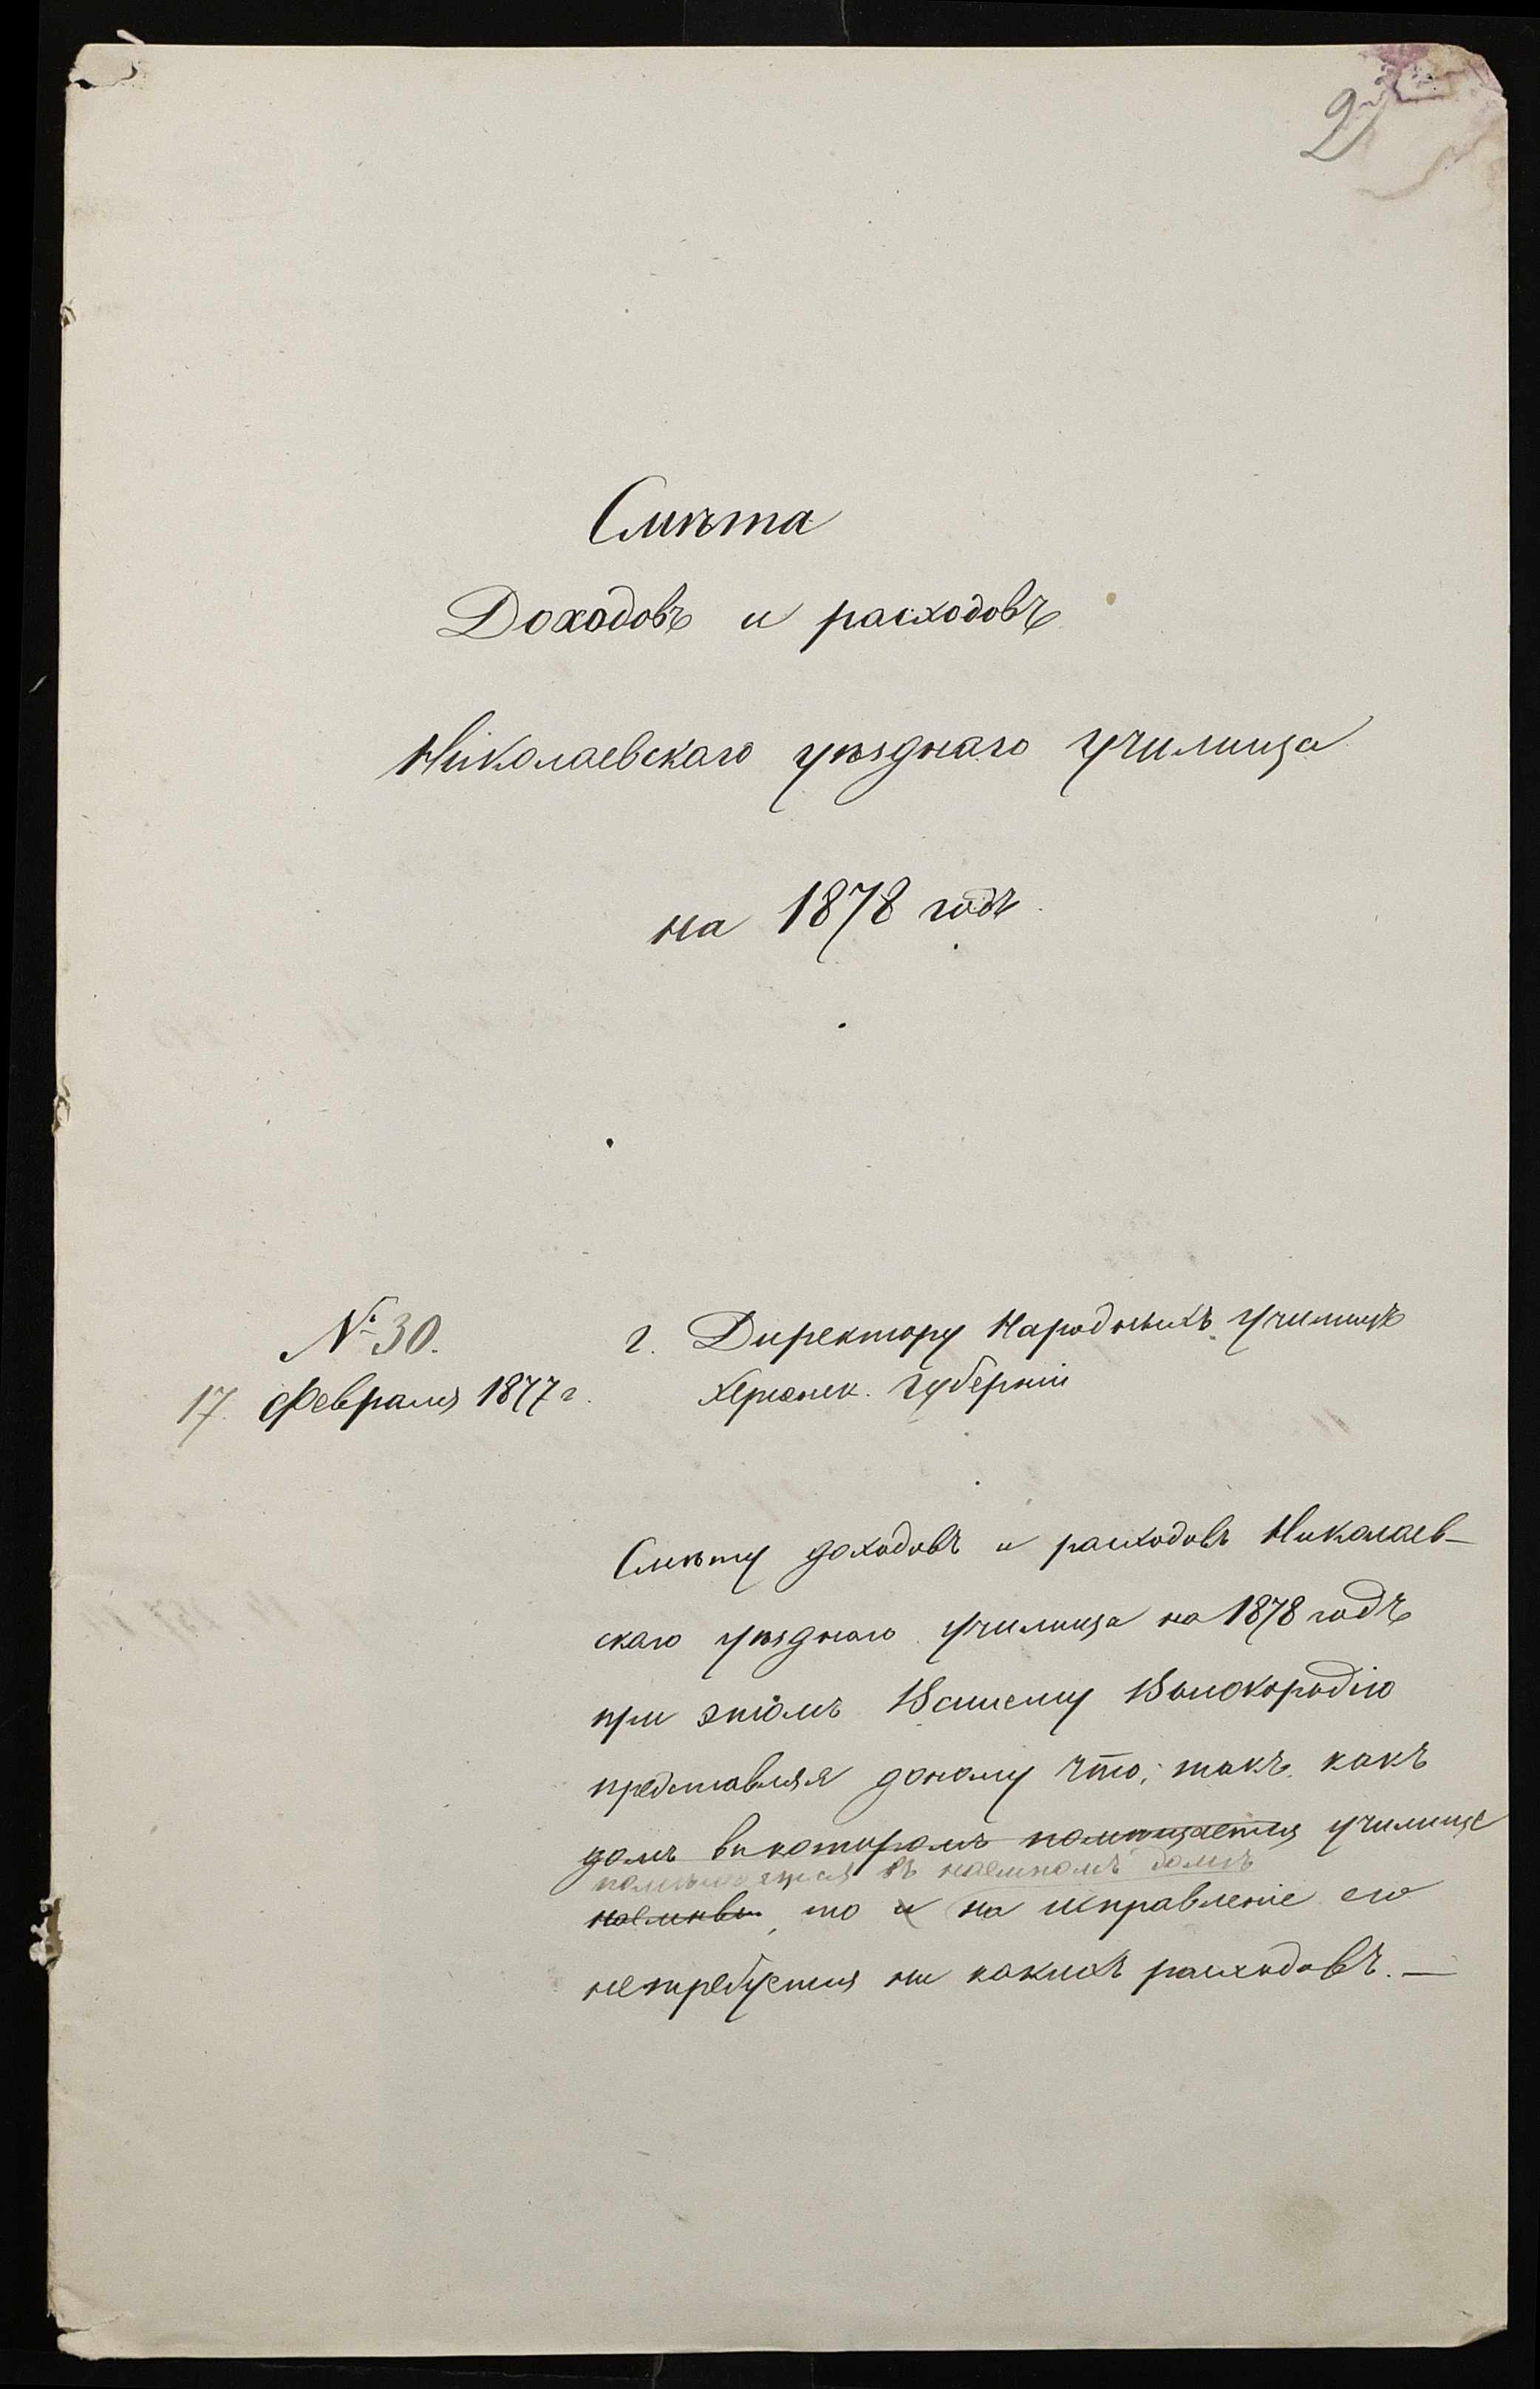 2
Смѣта
Доходовъ и расходовъ
Николаевскаго уѣзднаго училища
на 1878 годъ.
№ 30.
17. Февраля 1877 г.
г. Директору Народныхъ училищъ
Херсонск. Губерніи
Смѣту доходовъ и расходовъ Николаев-
скаго уѣзднаго училища на 1878 годъ
при этомъ Вашему Высокородію
представляя доношу что, такъ какъ
домъ въ которомъ помѣщается училище
помѣщается въ наемномъ домѣ
то и на исправленіе его
нетребуется ни какихъ расходовъ. —